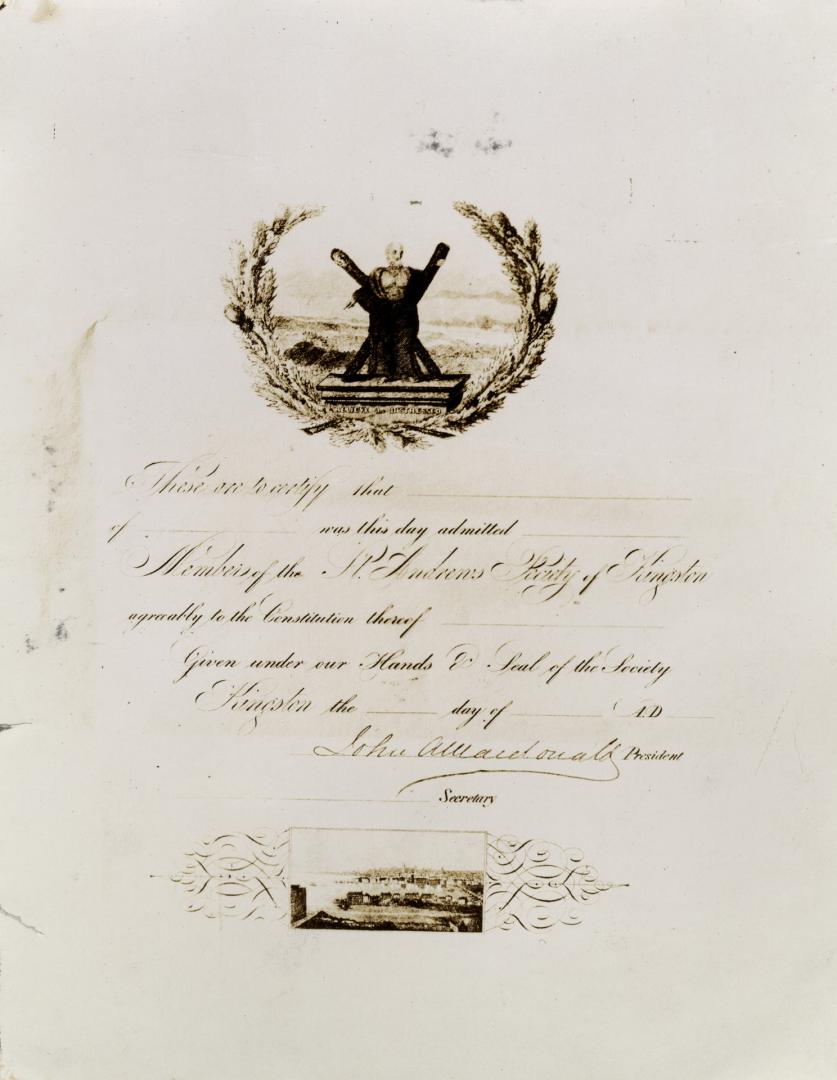 RELIEVE THE DISTRESSED
These are to certify that
of was this day admitted
Members of the St. Andrews Society of Kingston
agreeably to the Constitution thereof
Given under our Hands & Seal of the Society
Kingston the day of A.D
John A Macdonald President
Secretary